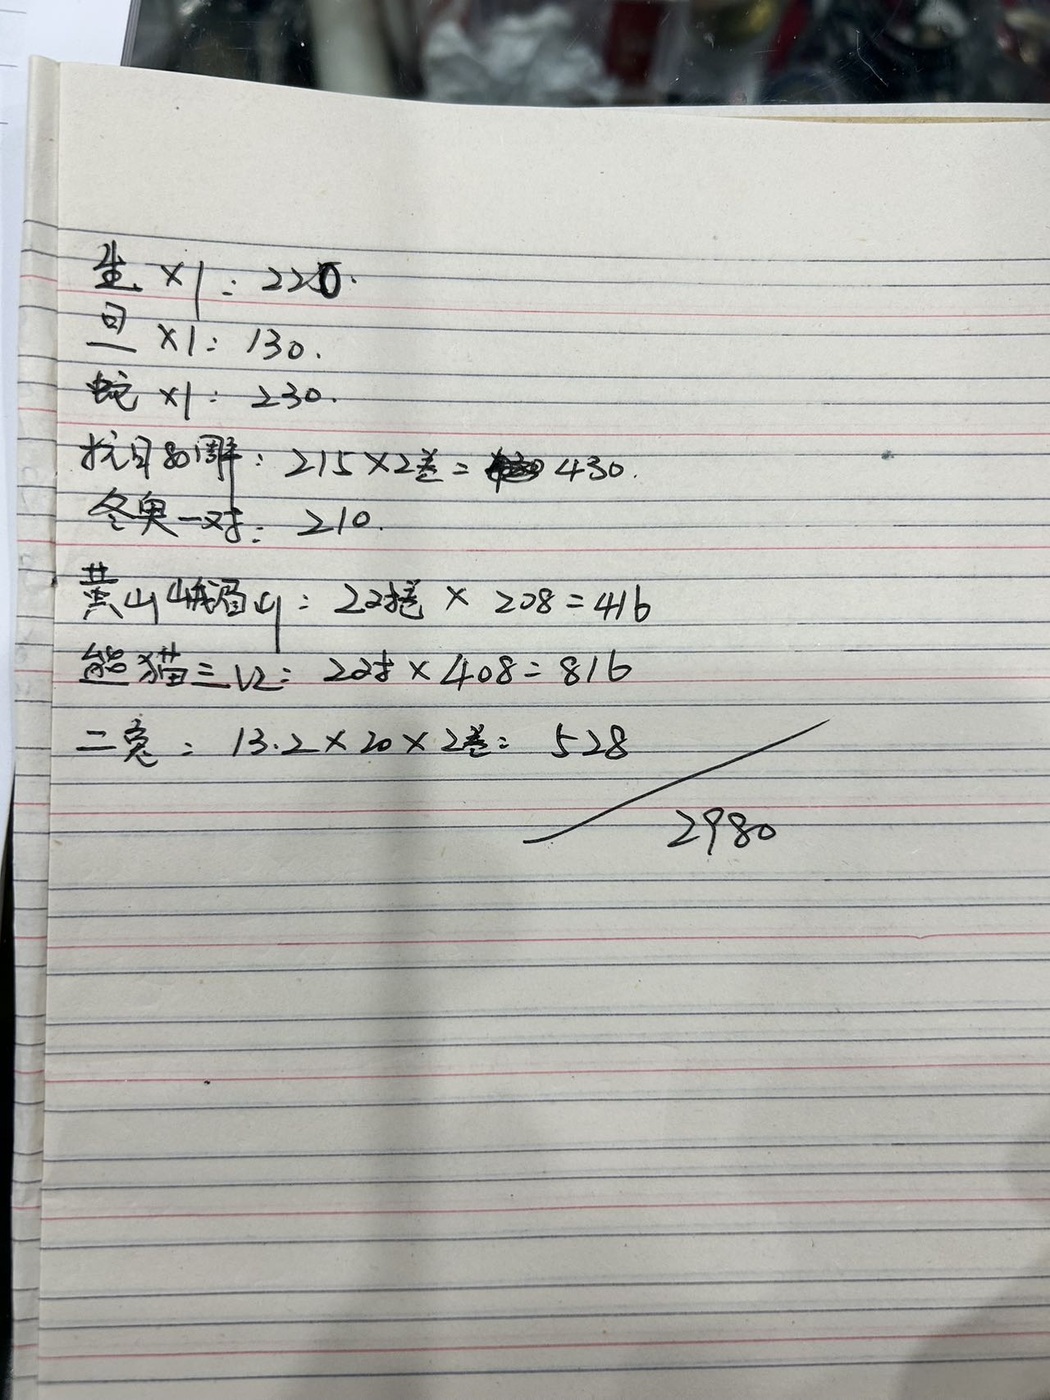 生×1：220.
旦×1：130.
蛇×1：230.
抗日80周年：215×2卷=430.
冬奥一对：210.
黄山峨眉山：2对卷×208=416
熊猫三凹：2对×408=816
二兔：13.2×20×2卷=528
2980